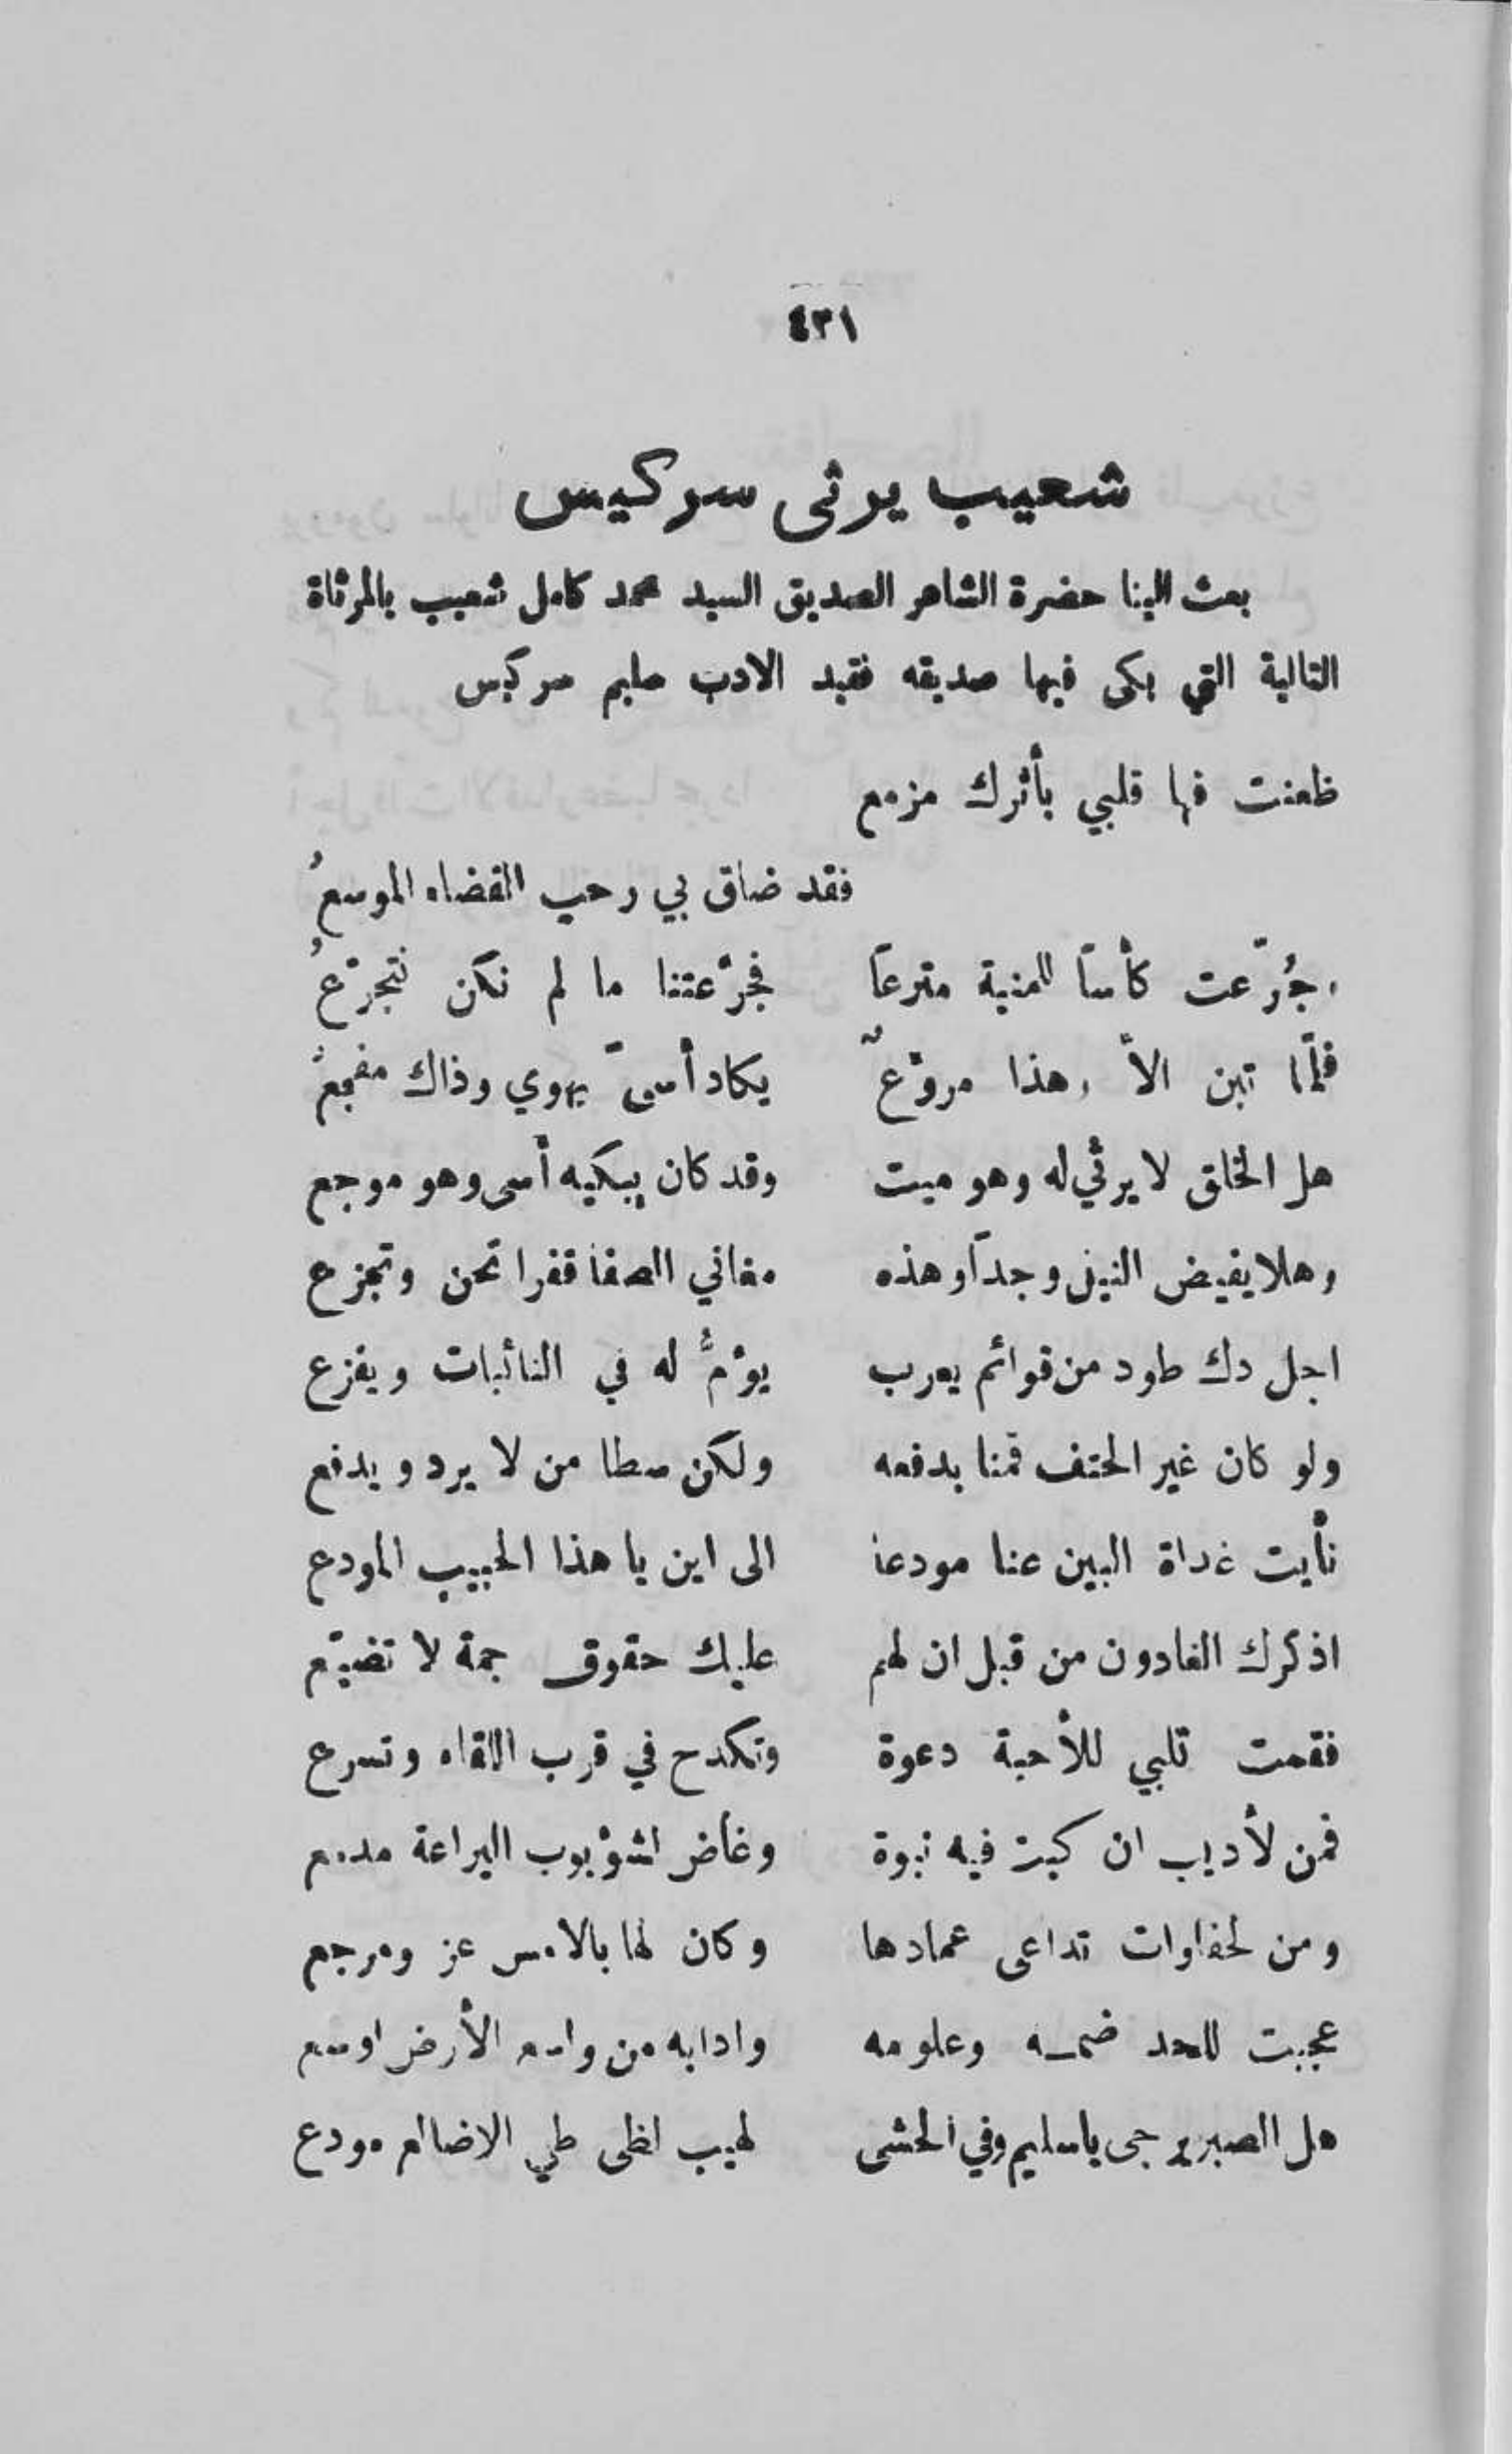 ٤٣١
شعيب يرثى سركيس
بعث الينا حضرة الشاعر الصديق السيد محمد كامل شعيب بالمرثاة
التالية التي بكى فيها صديقه فقيد الادب سليم سركيس
ظعنت فها قلبي بأثرك مزمع
فقد ضاق بي رحب الفضاء الموسعُ
وجُرّعت كأساً للمنية مترعاً فجرّعتنا ما لم نكن نتجرّعُ
فلمّا تبن الاّ وهذا مروّعٌ يكاد أسىً يهوي وذاك مفجعُ
هل الخلق لا يرثي له وهو ميت وقد كان يبكيه أسى وهو موجع
وهلا يفيض النيل وجداً وهذه مغاني الصفا قفرا تحن وتجزع
اجل دك طود من قوائم يعرب يؤمُّ له في النائبات ويفزع
ولو كان غير الحتف قمنا بدفعه ولكن سطا من لا يرد ويدفع
نأيت غداة البين عنا مودعا الى اين يا هذا الحبيب المودع
اذكرك الغادون من قبل ان لهم عليك حقوق جمة لا تضيّع
فقمت تلبي للأحبة دعوة وتكدح في قرب اللقاء وتسرع
فمن لأديب ان كبت فيه نبوة وغاض لشؤبوب اليراعة مدمع
ومن لحفاوات تداعى عمادها وكان لها بالامس عز ومرجع
عجبت للحد ضمـه وعلومه وادابه من واسع الأرض اوسع
هل الصبر يرجى يا سليم وفي الحشى لهيب لظى طي الاضالع مودع